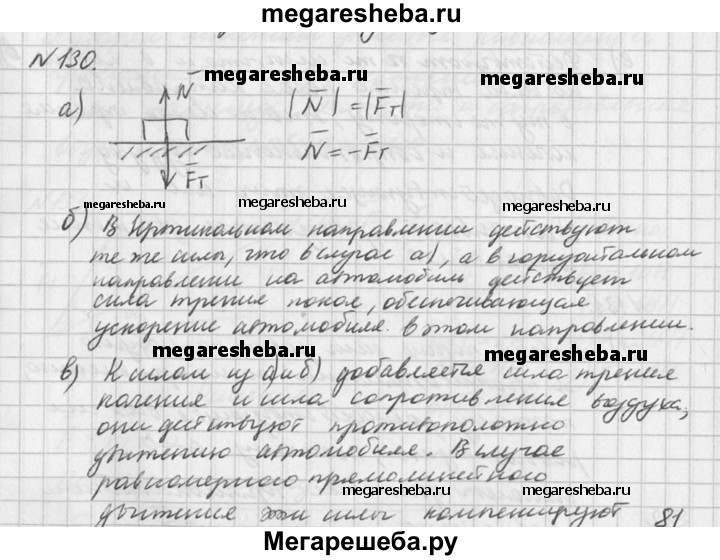 megaresheba.ru
N130.
megaresheba.ru megaresheba.ru
а) N̄ |N̄| = |F̄т|
N̄ = -F̄т
F̄т
megaresheba.ru megaresheba.ru megaresheba.ru
б) В вертикальном направлении действуют
те же силы, что в случае а), а в горизонтальном
направлении на автомобиль действует
сила трения покоя, обеспечивающая
ускорение автомобиля в этом направлении.
megaresheba.ru megaresheba.ru
в) К силам из а) и б) добавляется сила трения
качения и сила сопротивления воздуха,
они действуют противоположно
движению автомобиля. В случае
равномерного прямолинейного
megaresheba.ru megaresheba.ru
движения эти силы компенсируют 81
Мегарешеба.ру